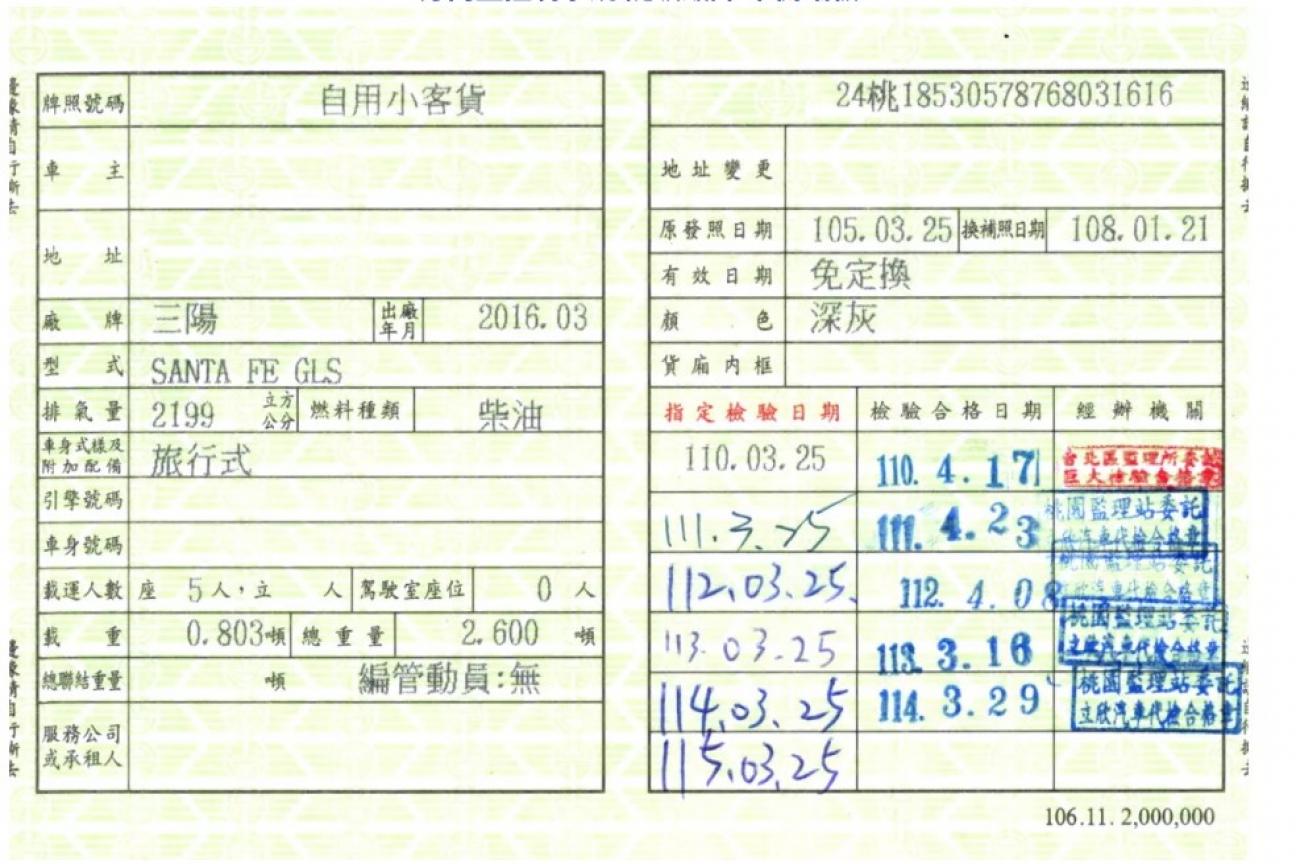 牌照號碼 自用小客貨
車主
地址
廠牌 三陽 出廠年月 2016.03
型式 SANTA FE GLS
排氣量 2199 立方公分 燃料種類 柴油
車身式樣及附加配備 旅行式
引擎號碼
車身號碼
載運人數 座 5人,立 人 駕駛室座位 0 人
載重 0.803噸 總重量 2.600 噸
總聯結重量 噸 編管動員:無
服務公司或承租人
24桃18530578768031616
地址變更
原發照日期 105.03.25 換補照日期 108.01.21
有效日期 免定換
顏色 深灰
貨廂內框
指定檢驗日期 檢驗合格日期 經辦機關
110.03.25 110. 4. 17
111.3.25 111. 4. 23 桃園監理站委託
112.03.25. 112. 4. 08
113.03.25 113. 3. 16 桃園監理站委託
立欣汽車代檢合格章
114.03.25 114. 3. 29 桃園監理站委託
立欣汽車代檢合格章
115.03.25
106.11. 2,000,000